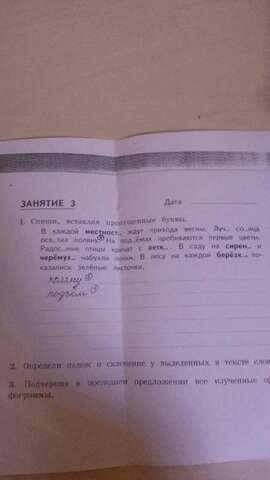 ЗАНЯТИЕ 3 Дата
1. Спиши, вставляя пропущенные буквы.
В каждой местност.. ждут прихода весны. Луч.. со..нца
осв..тил поляну① На под..ёмах пробиваются первые цветы.
Радос..ные птицы кричат с ветк.. . В саду на сирен.. и
черёмух.. набухли почки. В лесу на каждой берёзк.. по-
казались зелёные листочки.
поляну
подъём
2. Определи падеж и склонение у выделенных в тексте слов
3. Подчеркни в последнем предложении все изученные ор
фограммы.